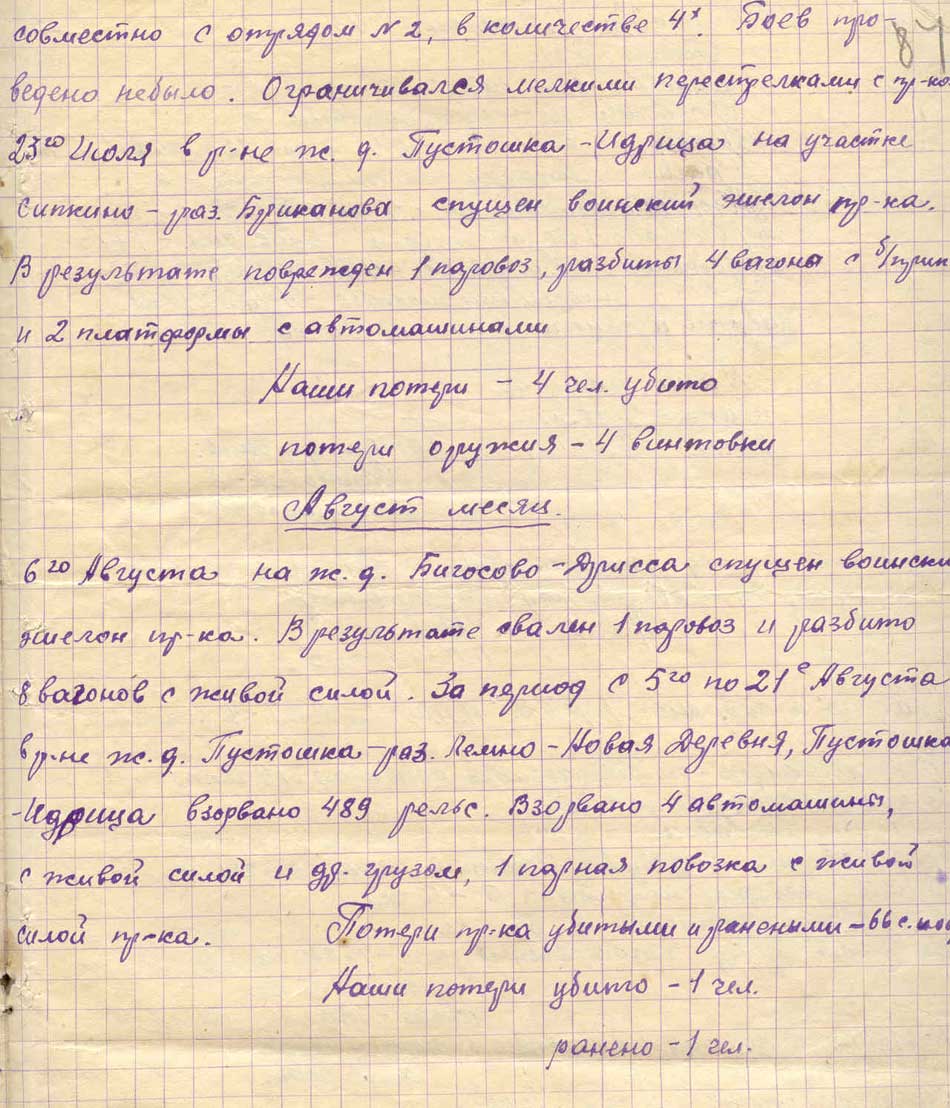 совместно с отрядом N 2, в количестве 4х. Боев про-
87
ведено небыло. Ограничивался мелкими перестрелками с пр-ко
23го Июля в р-не ж. д. Пустошка - Идрица на участке
Сипкино - раз. Брыканова спущен воинский эшелон пр-ка.
В результате поврежден 1 паровоз, разбиты 4 вагона с б/прип
и 2 платформы с автомашинами
Наши потери - 4 чел. убито
потери оружия - 4 винтовки
Август месяц.
6го Августа на ж. д. Бигосово - Дрисса спущен воински
эшелон пр-ка. В результате свален 1 паровоз и разбито
8 вагонов с живой силой. За период с 5го по 21е Августа
в р-не ж. д. Пустошка - раз. Нащекино - Новая Деревня, Пустошка
- Идрица взорвано 489 рельс. Взорвано 4 автомашины,
с живой силой и др. грузом, 1 парная повозка с живой
силой пр-ка. Потери пр-ка убитыми и ранеными - 66
Наши потери убито - 1 чел.
ранено - 1 чел.